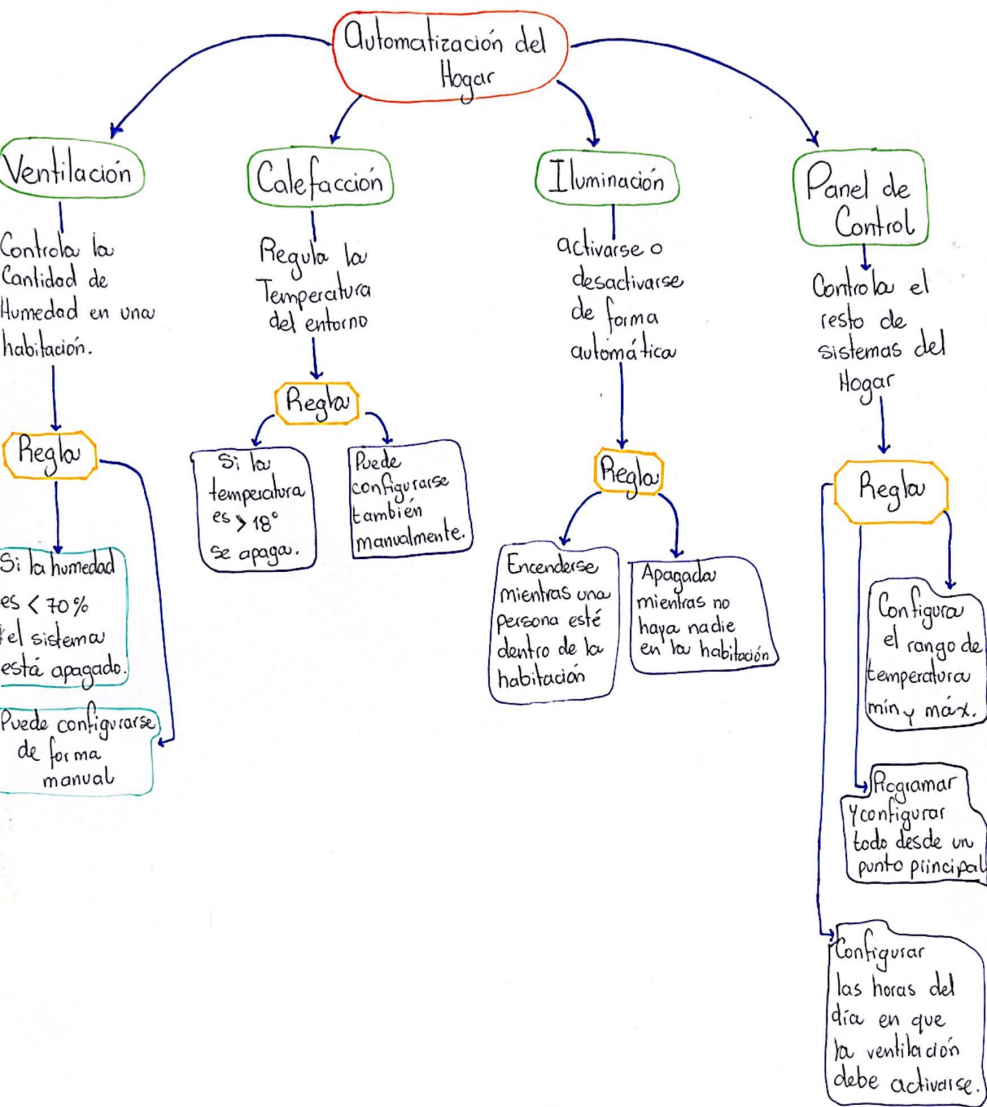 Automatización del
Hogar
Ventilación
Controla la
Cantidad de
Humedad en una
habitación.
Regla
Si la humedad
es < 70%
el sistema
está apagado.
Puede configurarse
de forma
manual
Calefacción
Regula la
Temperatura
del entorno
Regla
Si la
temperatura
es > 18°
se apaga.
Puede
configurarse
también
manualmente.
Iluminación
activarse o
desactivarse
de forma
automática
Regla
Encenderse
mientras una
persona esté
dentro de la
habitación
Apagada
mientras no
haya nadie
en la habitación
Panel de
Control
Controla el
resto de
sistemas del
Hogar
Regla
Configura
el rango de
temperatura
mín y máx.
Programar
y configurar
todo desde un
punto principal
Configurar
las horas del
día en que
la ventilación
debe activarse.